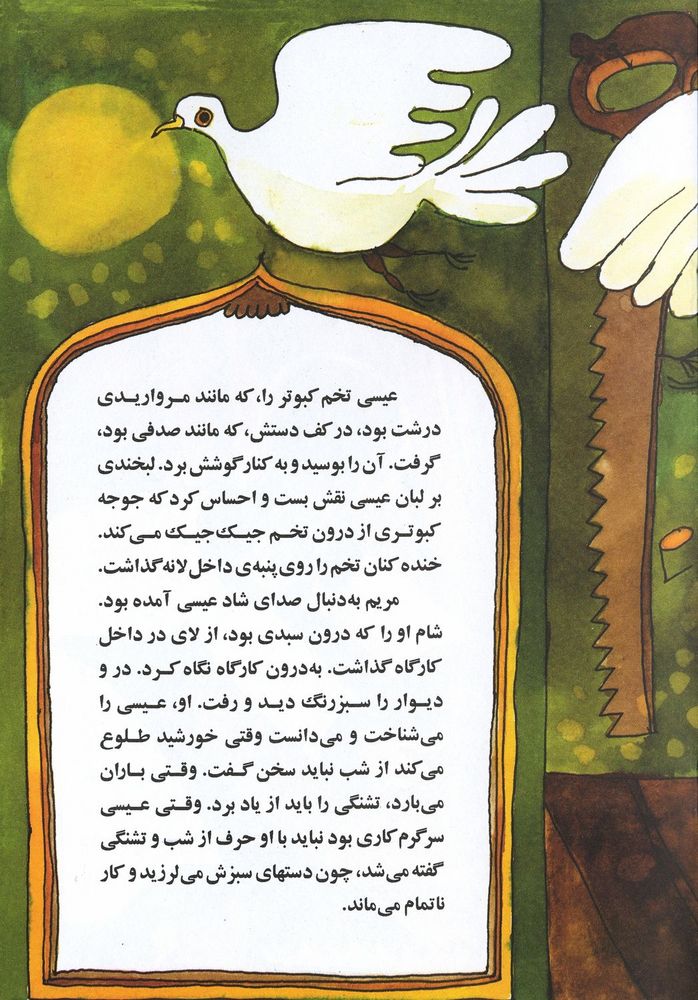 عیسی تخم کبوتر را، که مانند مـرواریـدی
درشت بود، در کف دستش، که مانند صدفی بود،
گرفت. آن را بوسید و به کنار گوشش برد. لبخندی
بر لبان عیسی نقش بست و احساس کرد که جوجه
کبوتـری از درون تخـم جیـک‌جیـک مـی‌کند.
خنده کنان تخم را روی پنبه‌ی داخل لانه گذاشت.
مریم به‌دنبال صدای شاد عیسی آمده بود.
شام او را که درون سبدی بود، از لای در داخل
کارگاه گذاشت. به‌درون کارگاه نگاه کـرد. در و
دیـوار را سـبزرنگ دیـد و رفت. او، عـیسی را
می‌شناخت و می‌دانست وقتی خورشید طلـوع
می‌کند از شب نباید سخن گـفت. وقـتی بـاران
می‌بارد، تشنگی را باید از یاد برد. وقـتی عـیسی
سرگرم کاری بود نباید با او حرف از شب و تشنگی
گفته می‌شد، چون دستهای سبزش می‌لرزید و کار
ناتمام می‌ماند.